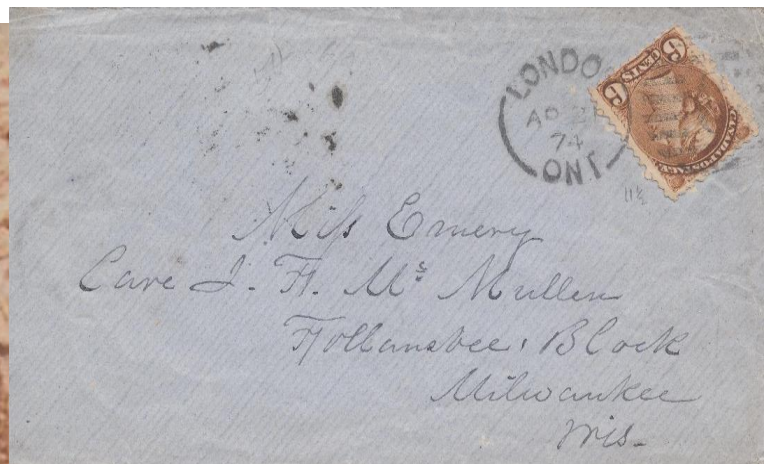 LONDO
AP
74
ONT
6 CENTS 6
CANADA POSTAGE
11½
Miss Emery
Care J. H. Mc Mullen
Hollansbee, Block
Milwaukee
Wis.